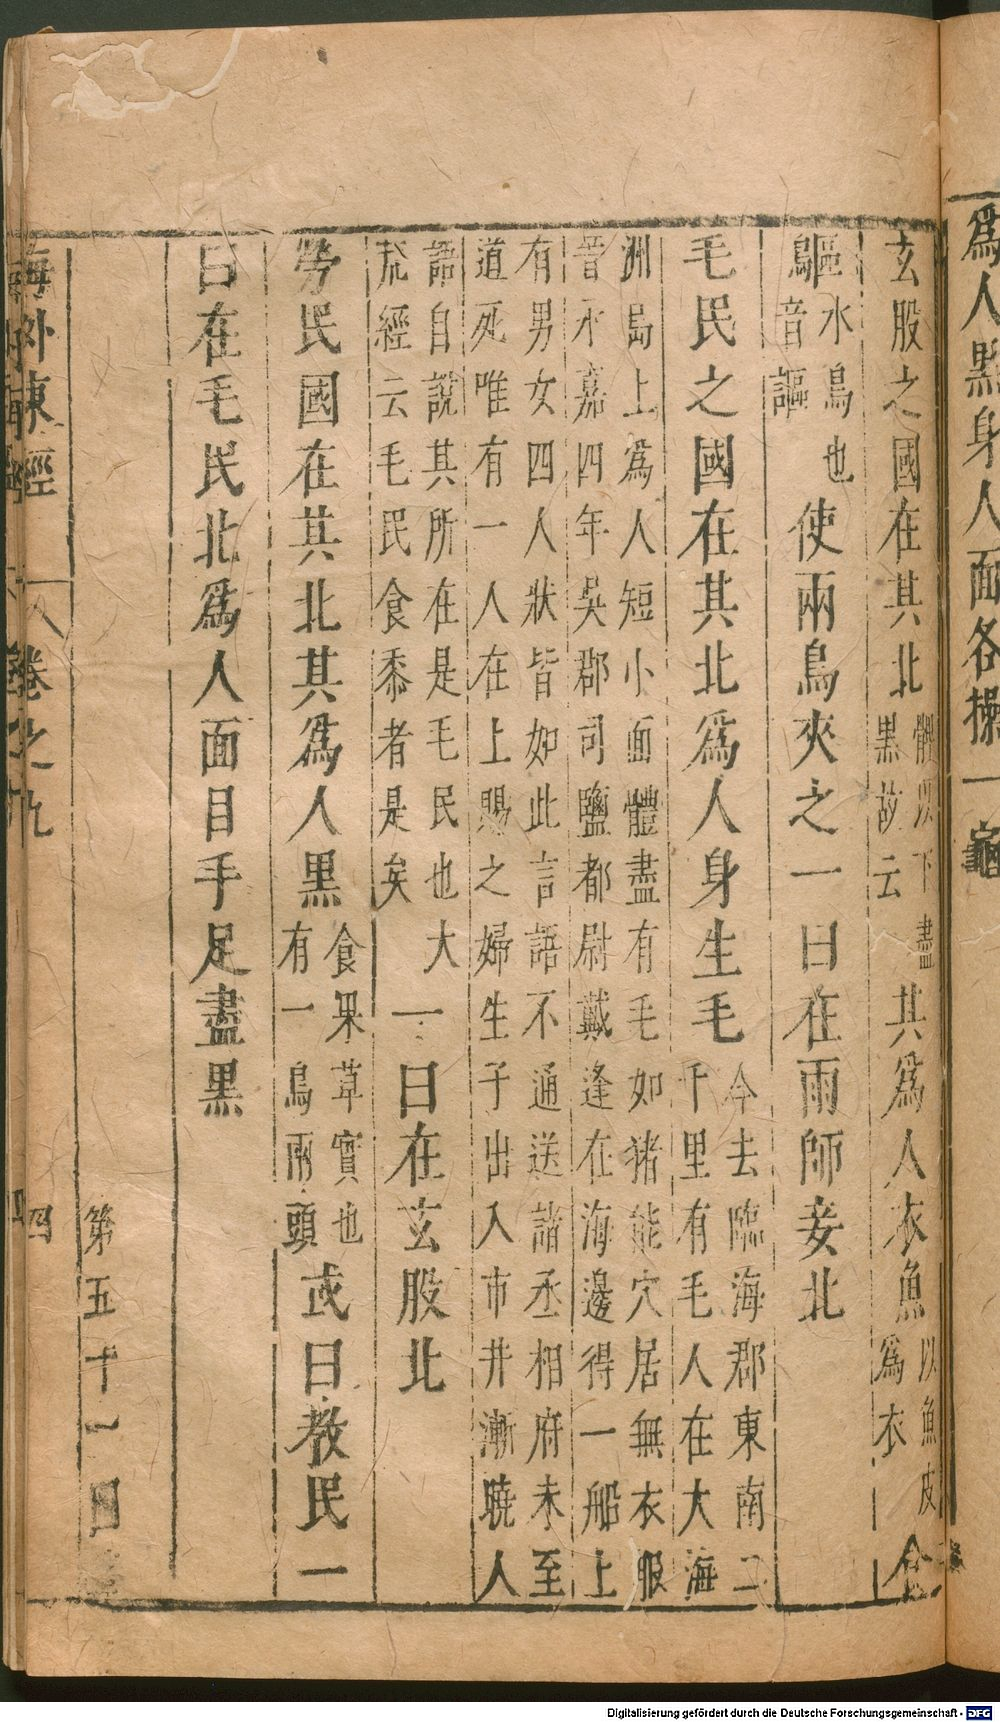 爲人黑身人面各操一龜
玄股之國在其北
髀以下盡
黑故云
其爲人衣魚
以魚皮
爲衣
食
鷗
水鳥也
音謳
使兩鳥夾之一曰在雨師妾北
毛民之國在其北爲人身生毛
今去臨海郡東南二
千里有毛人在大海
洲島上爲人短小面體盡有毛如猪能穴居無衣服
晉永嘉四年吳郡司鹽都尉戴逢在海邊得一船上
有男女四人狀皆如此言語不通送詣丞相府未至
道死唯有一人在上賜之婦生子出入市井漸曉人
語自說其所在是毛民也大
荒經云毛民食黍者是矣
一曰在玄股北
勞民國在其北其爲人黑
食果草實也
有一鳥兩頭
或曰教民一
曰在毛民北爲人面目手足盡黑
第五十一
海外東經 卷之九 四
Digitalisierung gefördert durch die Deutsche Forschungsgemeinschaft - DFG